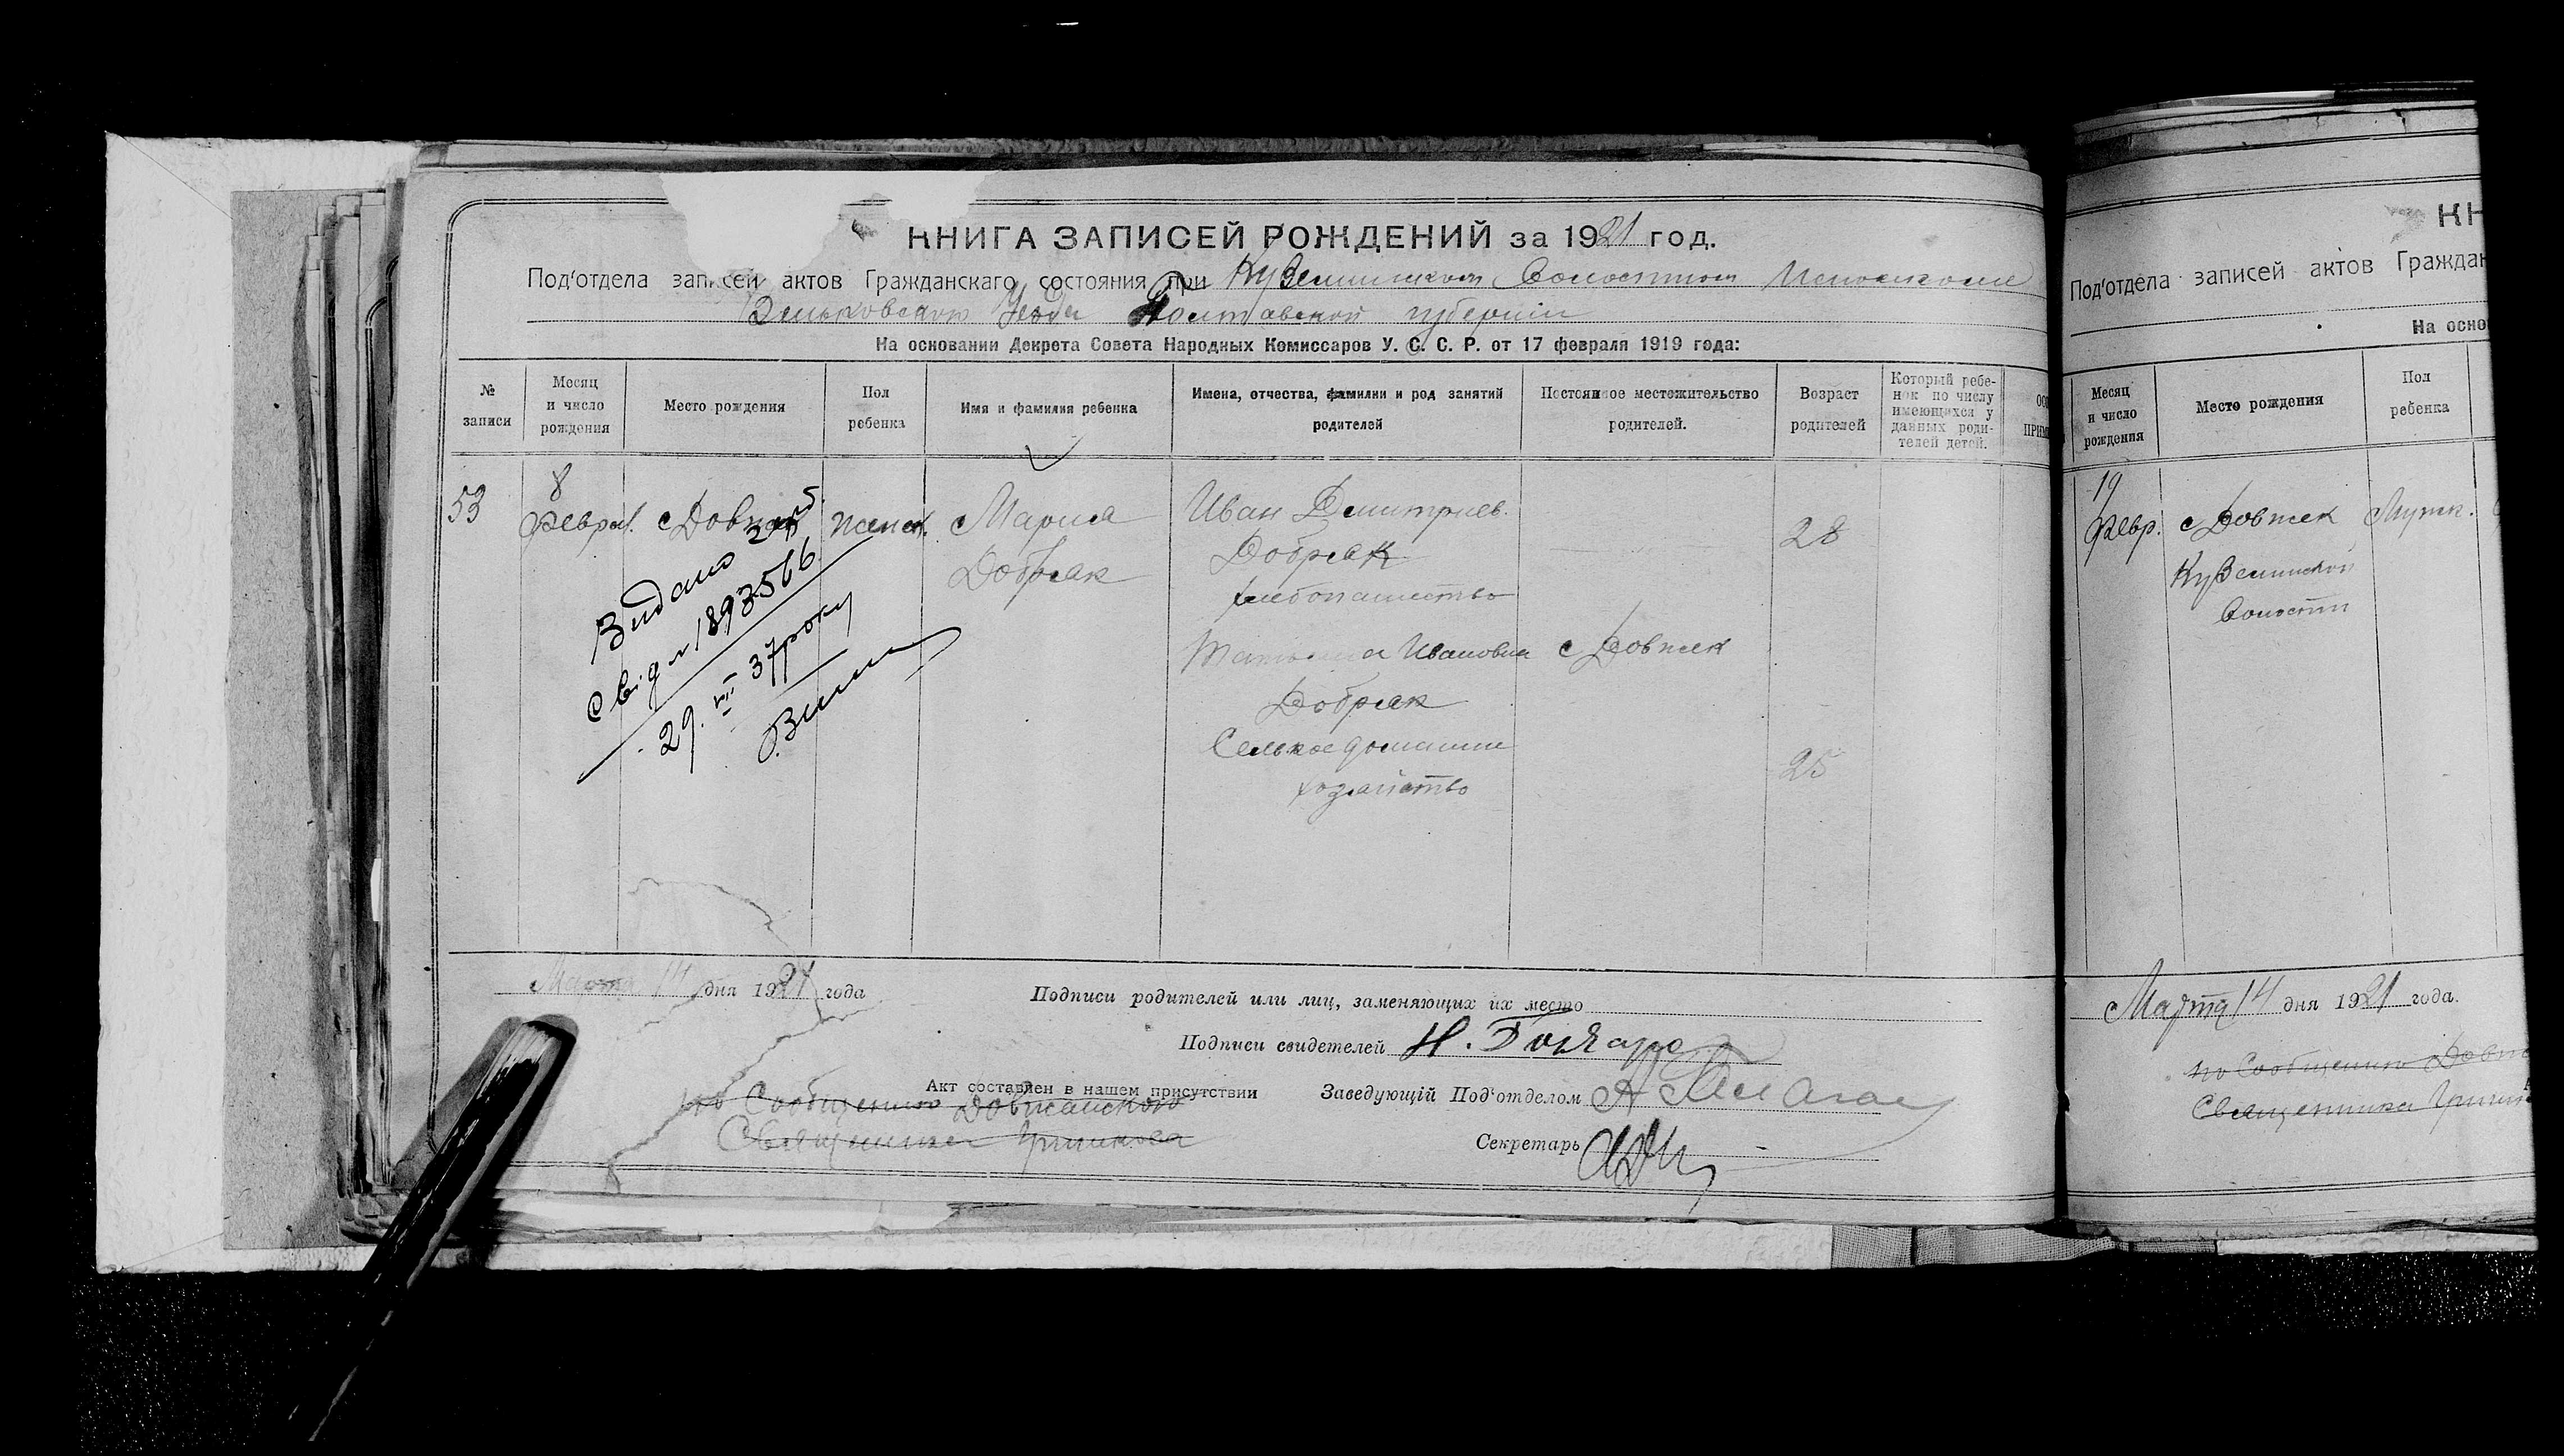 КНИГА ЗАПИСЕЙ РОЖДЕНИЙ за 1921 год.
Под'отдела записей актов Гражданскаго состояния при Куземинском Волостном Исполкоме
Зеньковского Уезда Полтавской губернии
На основании Декрета Совета Народных Комиссаров У. С. С. Р. от 17 февраля 1919 года:
№ записи
Месяц и число рождения
Место рождения
Пол ребенка
Имя и фамилия ребенка
Имена, отчества, фамилии и род занятий родителей
Постоянное местожительство родителей.
Возраст родителей
Который ребе-
нок по числу
имеющихся у
данных роди-
телей детей.
53
8
Феврал.
с Довжек
женск.
Мария
Добряк
Иван Дмитриев.
Добряк
хлебопашество
28
Татьяна Ивановна
с Довжек
Добряк
Селькое домашне
хозяйство
25
Видано
Свід № 1893566
29. VII 37 року
Марта 14 дня 1921 года
Подписи родителей или лиц, заменяющих их место
Подписи свидетелей Н. Гончаро
Акт составлен в нашем присутствии
по Сообщению Довжанского
Священника
Заведующій Под'отделом
Секретарь
КН
Под'отдела записей актов Граждан
На осно
Месяц и число рождения
Место рождения
Пол ребенка
19
Февр.
с Довжек
Мужк.
Куземинской
Волости
Марта 14 дня 1921 года.
по Сообщению Довж
Священника